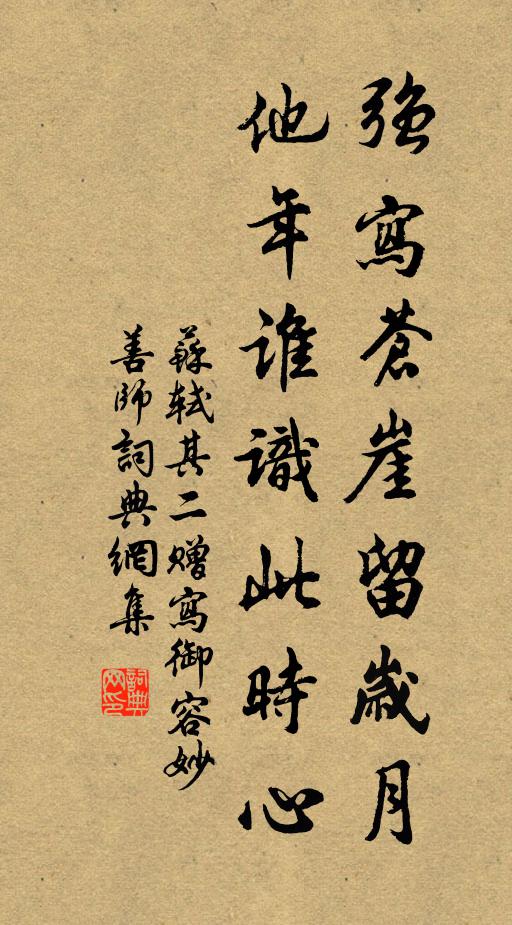 强寫蒼崖留歲月
他年誰識此時心
蘇軾其二贈寫御容妙
善師詞典網集
詞典网印